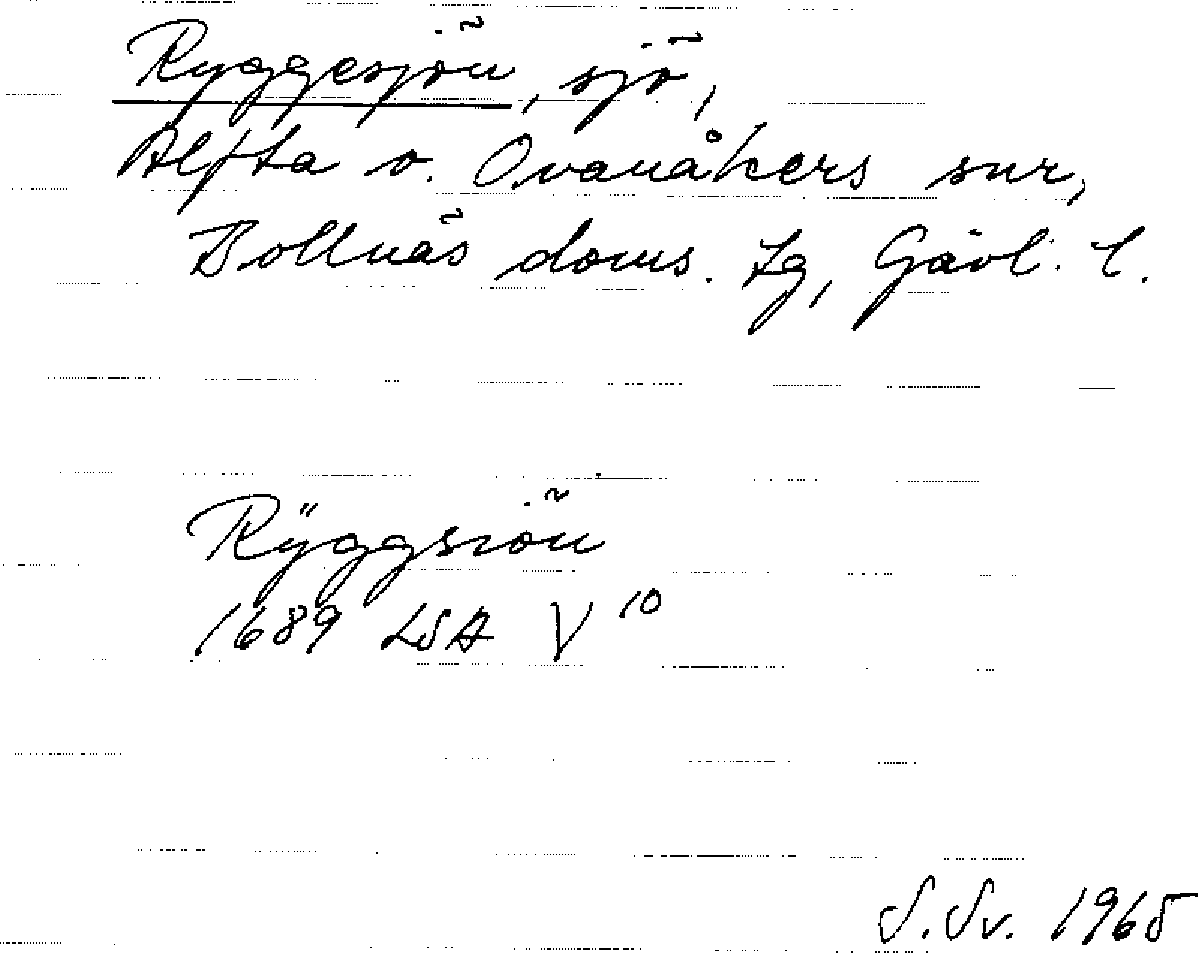 Ryggesjön, sjö,
Alfta o. Ovanåkers snr,
Bollnäs doms. tg, Gävl. l.
Rÿggsiön
1689 LSA V 10
S. Sv. 1965